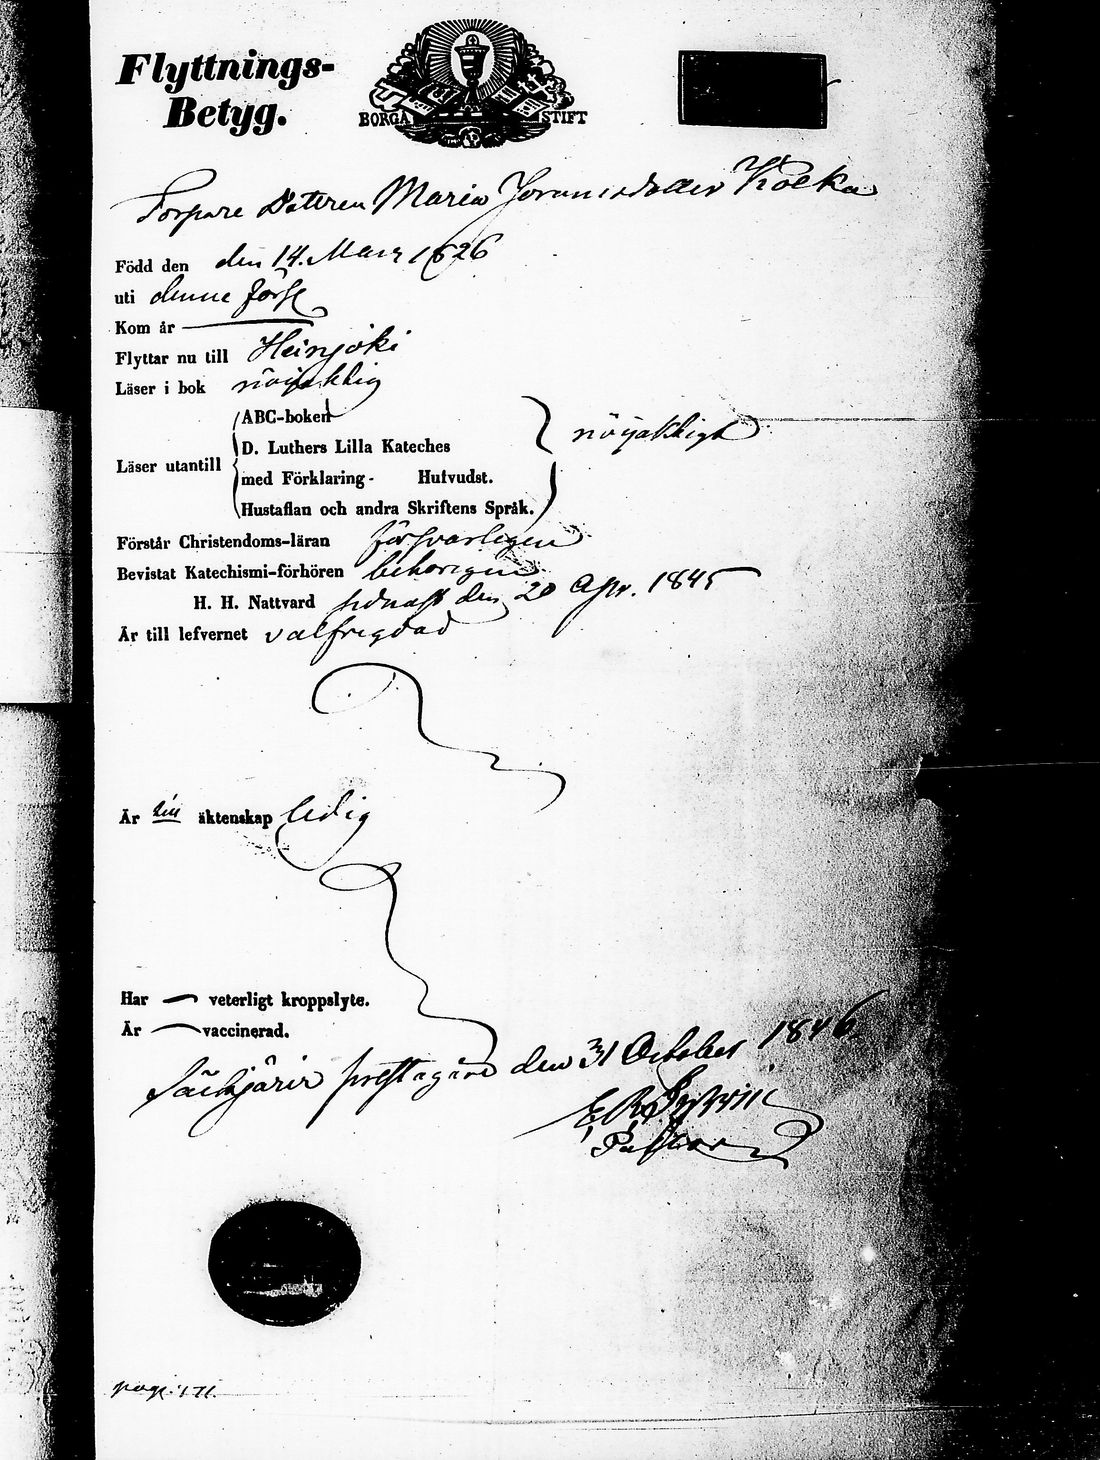 Flyttnings-
Betyg.
BORGÅ STIFT
Torpare Dottren Maria Joransdotter Kolka
Född den den 14. Mars 1826
uti denne förs.
Kom år
Flyttar nu till Heinjoki
Läser i bok nöijaktlig
ABC-boken
D. Luthers Lilla Kateches nöijaktligt
Läser utantill
med Förklaring- Hufvudst.
Hustaflan och andra Skriftens Språk.
Förstår Christendoms-läran försvarligen
Bevistat Katechismi-förhören behörigen
H. H. Nattvard sednast den 20 Apr. 1845
Är till lefvernet välfrejdad
Är till äktenskap ledig
Har veterligt kroppslyte.
Är vaccinerad.
Säckjärvi prestgård den 31 October 1846
Pastor
pag. 171.